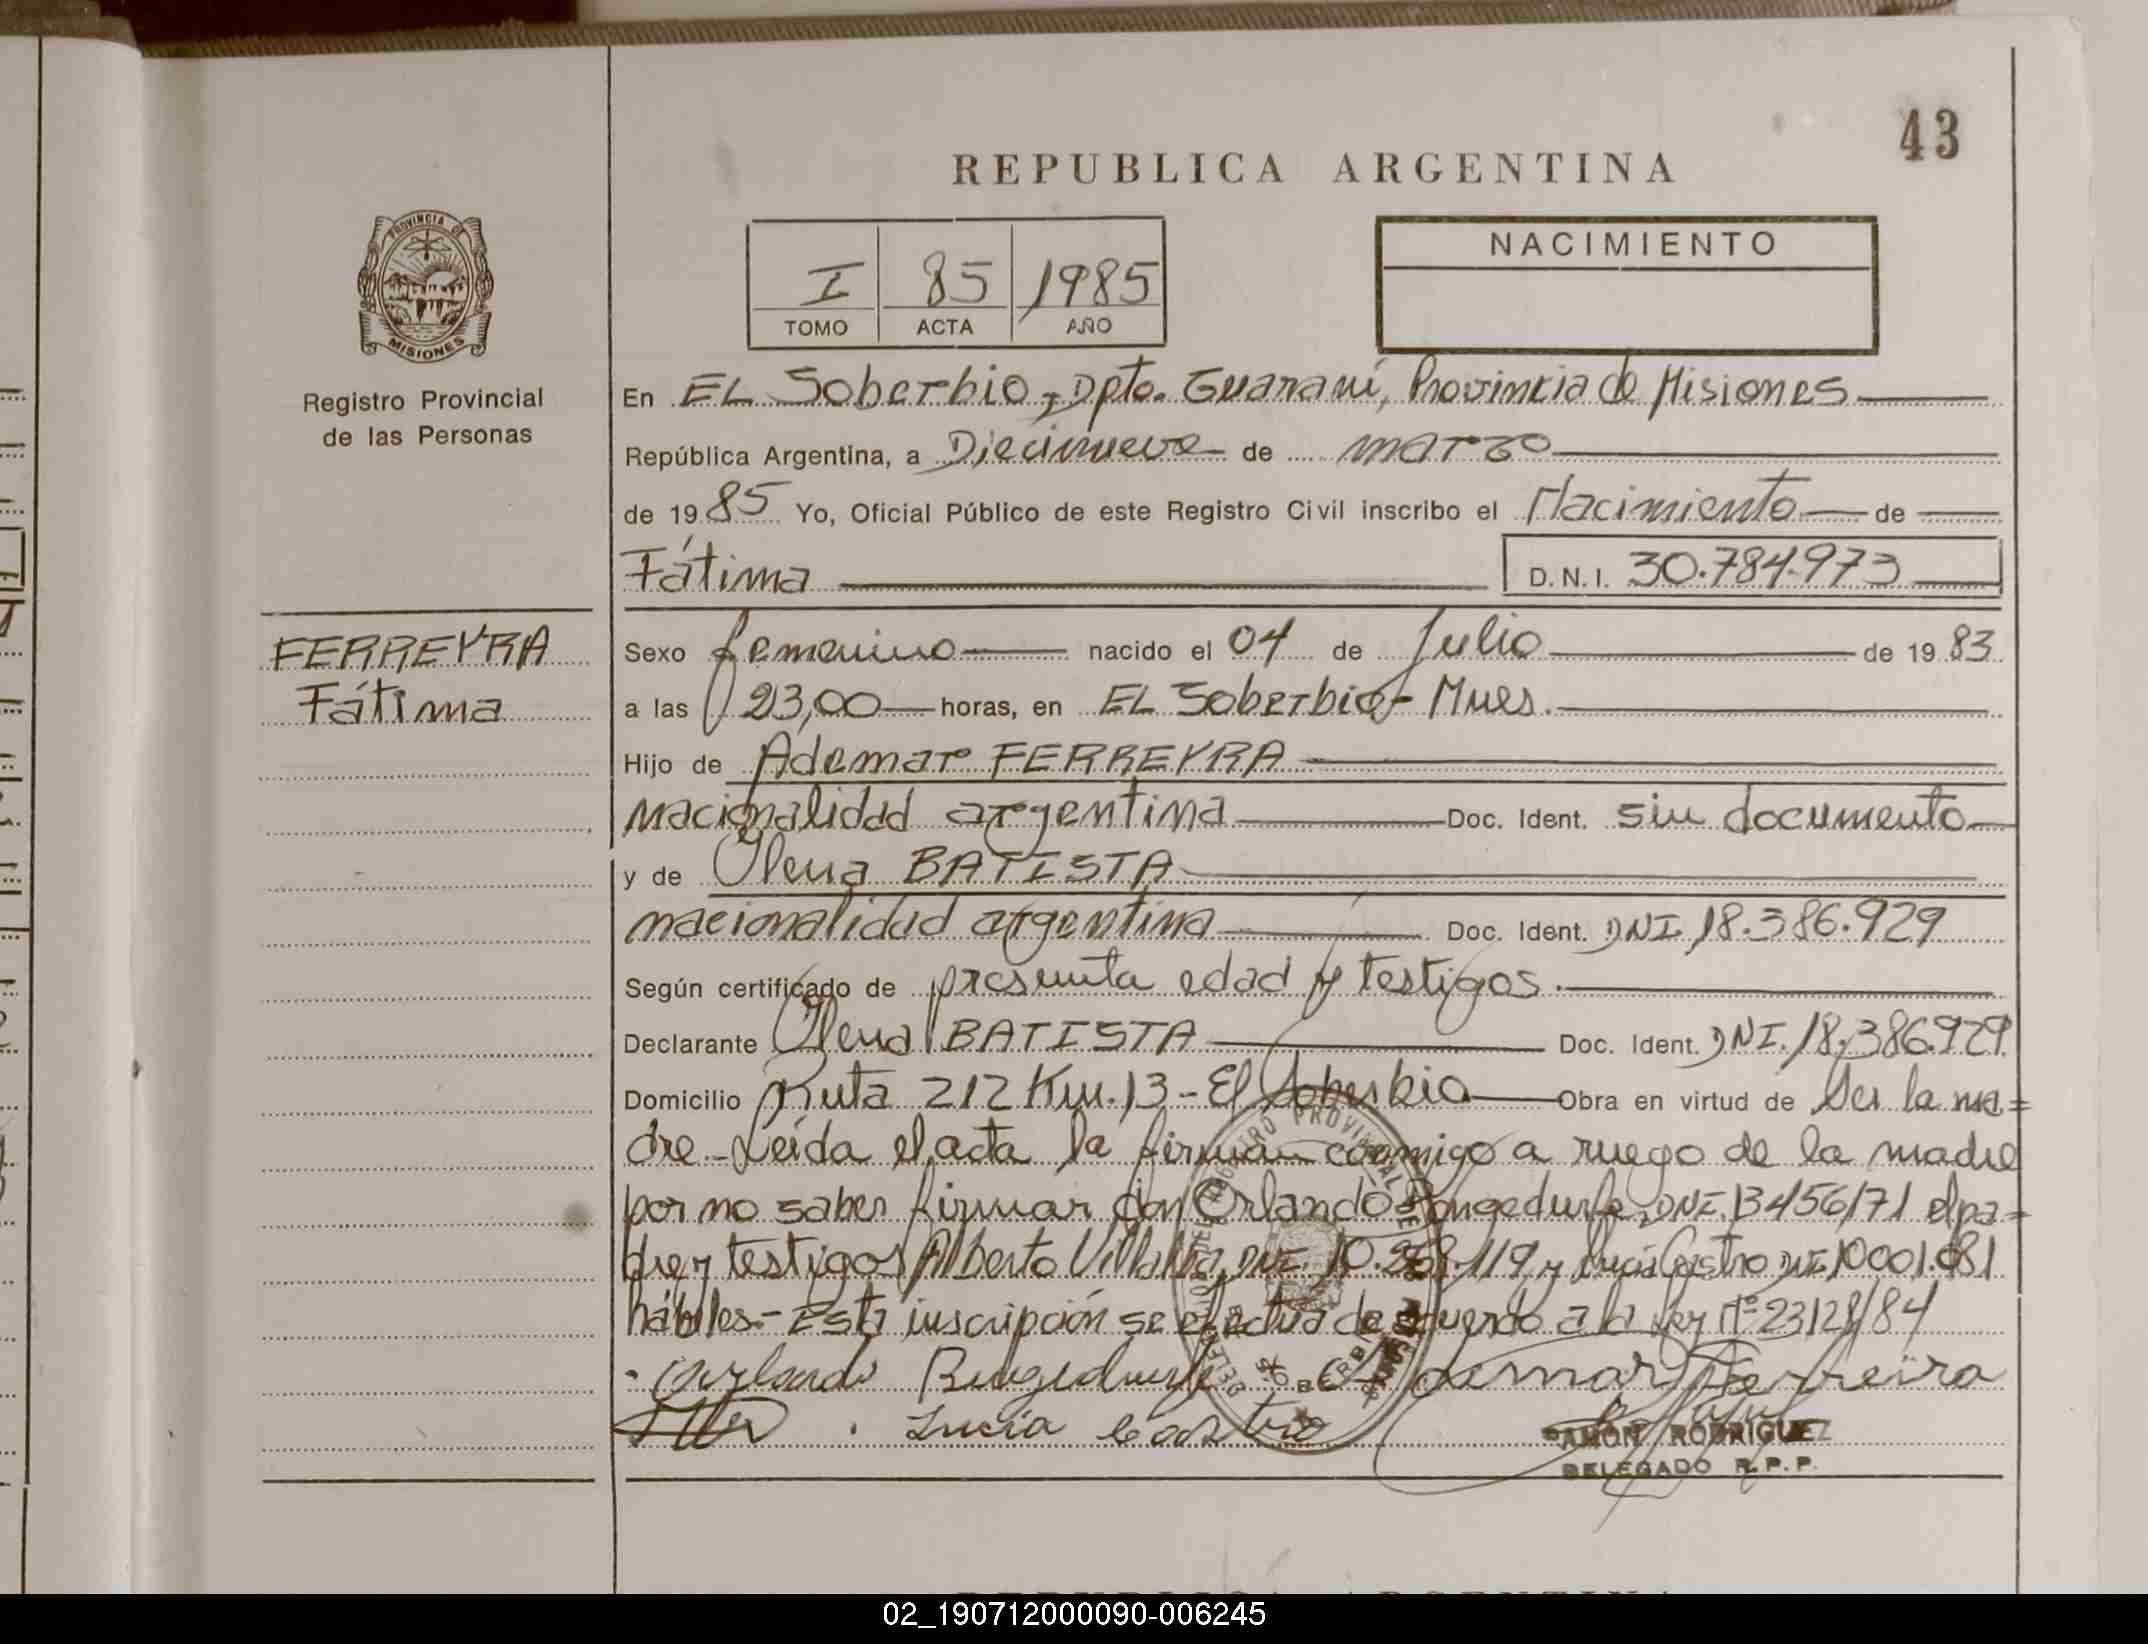 43
REPUBLICA ARGENTINA
PROVINCIA DE
MISIONES
Registro Provincial
de las Personas
I 85 1985
TOMO ACTA AÑO
NACIMIENTO
En EL Soberbio, Dpto. Guaraní, Provincia de Misiones
República Argentina, a Diecinueve de marzo
de 1985 Yo, Oficial Público de este Registro Civil inscribo el Nacimiento de
Fátima D.N.I. 30.784.973
FERREYRA
Fátima
Sexo femenino nacido el 04 de Julio de 1983
a las 23,00 horas, en EL Soberbio - Mnes.
Hijo de Ademar FERREYRA
nacionalidad argentina Doc. Ident. sin documento
y de Olena BATISTA
nacionalidad argentina Doc. Ident. DNI. 18.386.929
Según certificado de presunta edad y testigos.
Declarante Olena BATISTA Doc. Ident. DNI. 18.386.929
Domicilio Ruta 212 Km. 13 - El Soberbio Obra en virtud de Ser la ma=
dre - Leída el acta la firman conmigo a ruego de la madre
por no saber firmar don Orlando DNI. 13456171 el pa=
dre y testigos Alberto Villalba, DNI. 119 y Lucía Castro DNI. 10001.081
hábiles.- Esta inscripción se efectúa de acuerdo a la Ley Nº 23128/84
Orlando Ademar Ferreira
Lucia Castro
RAMON RODRIGUEZ
DELEGADO R.P.P.
REPUBLICA ARGENTINA
02_190712000090-006245